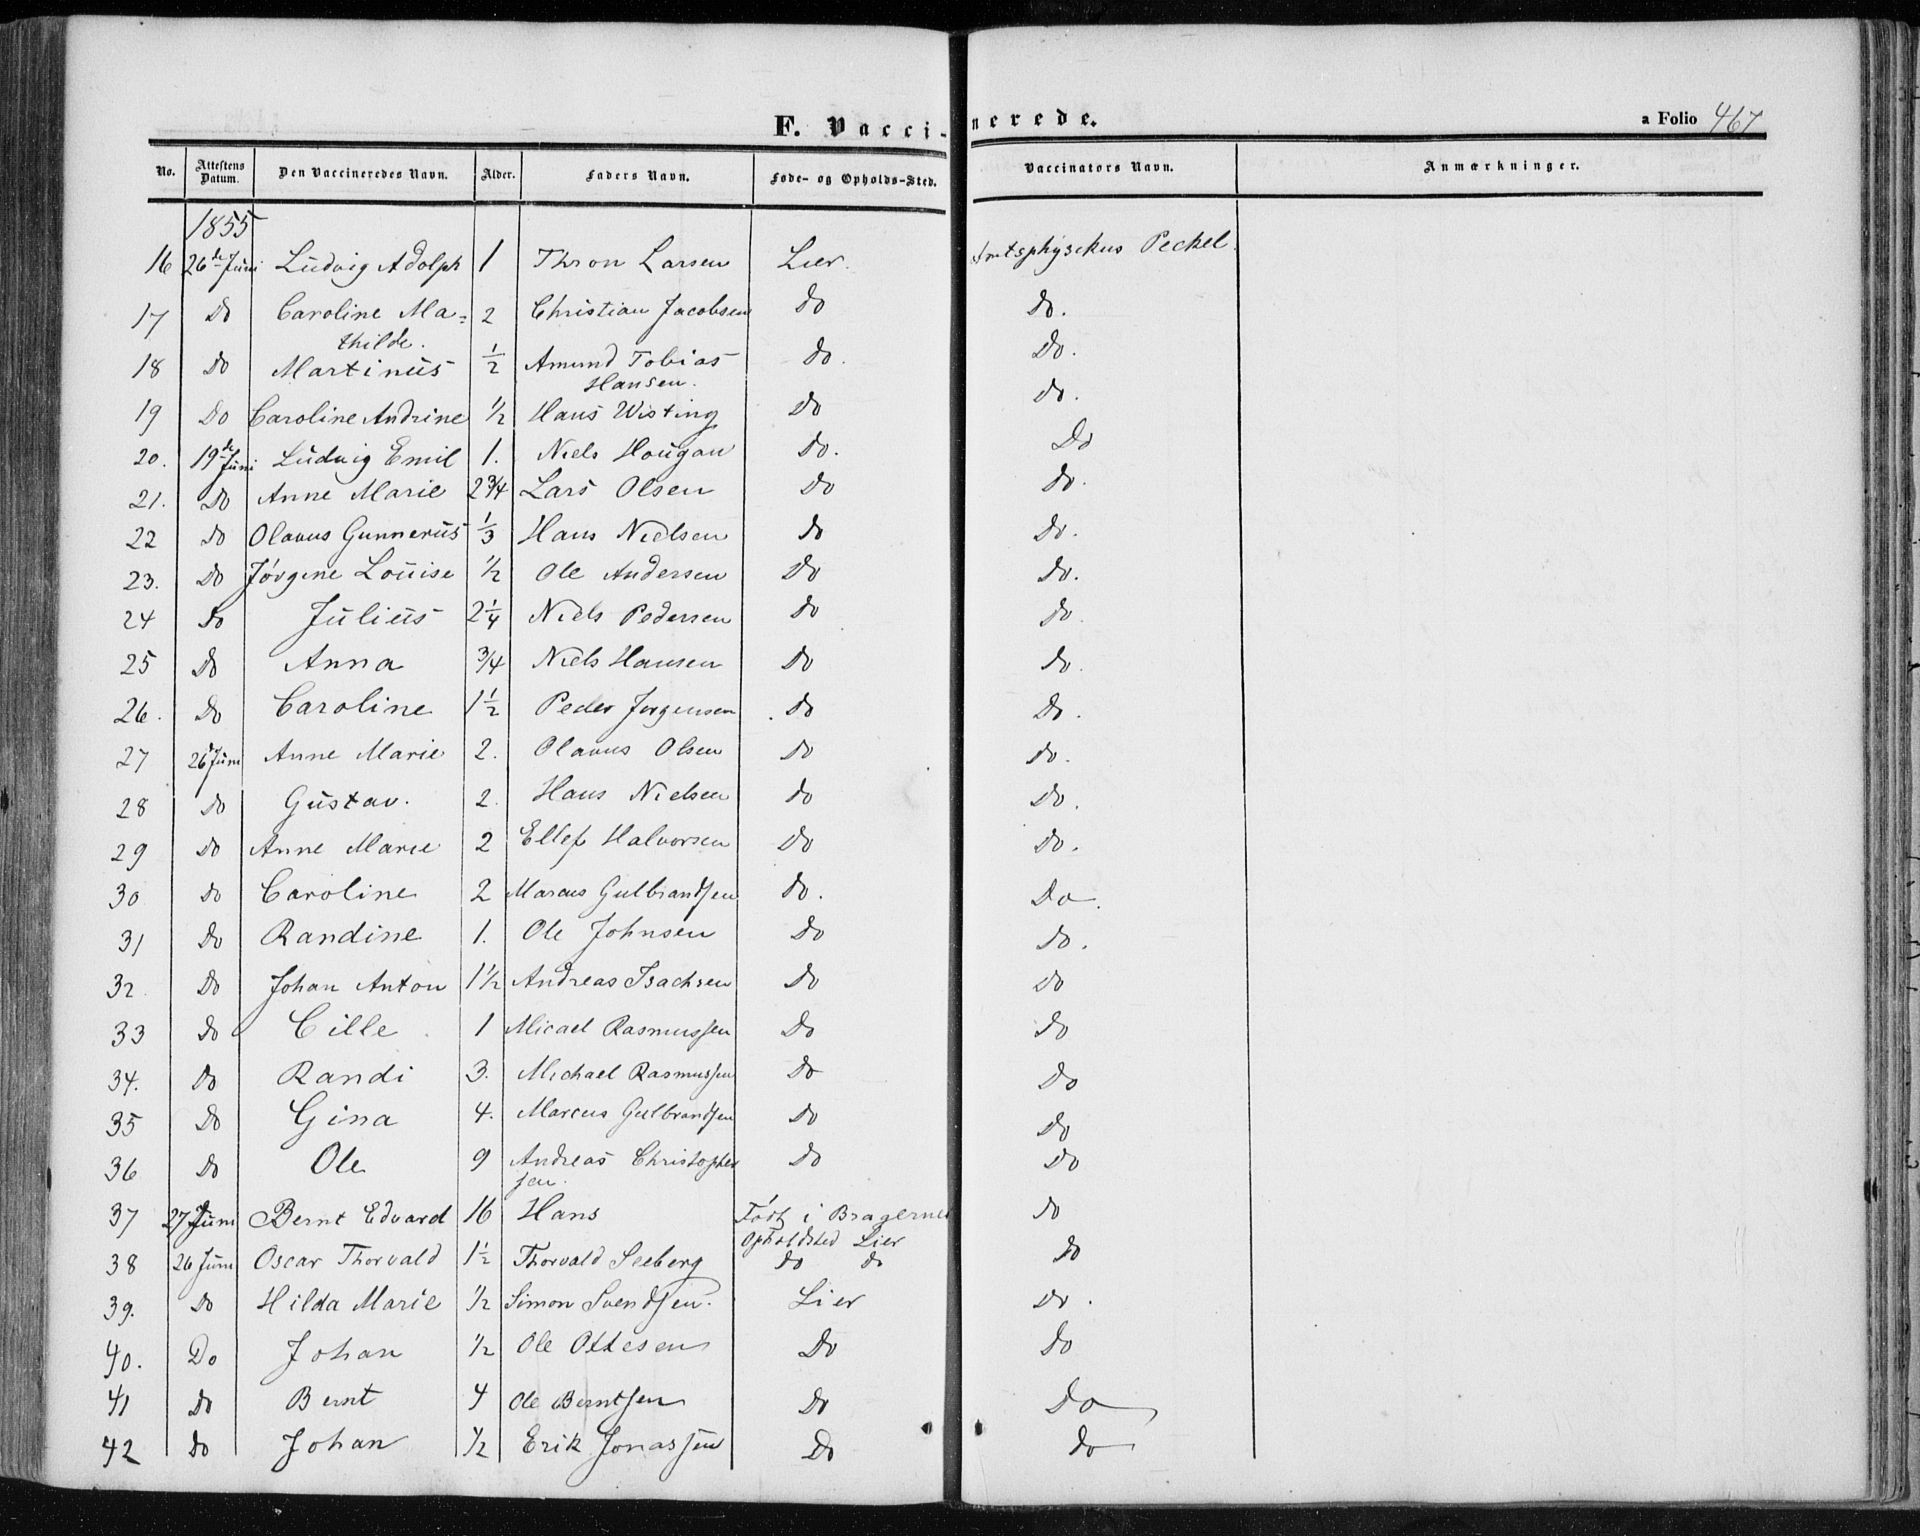 F. Vaccinerede.
a Folio 467
No. Attestens Datum. Den Vaccineredes Navn. Alder. Faders Navn. Føde- og Opholds-Sted. Vaccinators Navn. Anmærkninger.
1855
16 26de Juni Ludvig Adolph 1 Thron Larsen Lier. Amtsphysikus Peckel.
17 Do Caroline Ma= 2 Christian Jacobsen Do Do.
thilde.
18 Do Martinus 1/2 Amund Tobias Do. Do.
Hansen.
19 Do Caroline Andrine 1/2 Hans Wisting Do Do.
20. 19de Juni Ludvig Emil 1. Niels Hougan Do. Do
21. Do Anne Marie 2 3/4 Lars Olsen Do Do.
22 Do Olavus Gunnerus 1/3 Hans Nielsen Do Do.
23. Do Jørgine Louise 1/2 Ole Andersen Do Do.
24 Do Julius 2 1/4 Niels Pedersen Do Do.
25 Do Anna 3/4 Niels Hansen Do Do.
26. Do Caroline 1 1/2 Peder Jørgensen Do Do.
27 26d Juni Anne Marie 2. Olavus Olsen Do Do.
28 Do Gustav. 2. Hans Nielsen Do Do.
29 Do Anne Marie 2 Ellef Halvorsen Do Do.
30 Do Caroline 2 Marcus Gulbrandsen Do. Do.
31 Do Randine 1. Ole Johnsen Do Do.
32 Do Johan Anton 1 1/2 Andreas Isachsen Do Do
33 Do Cille 1 Micael Rasmussen Do Do
34. Do Randi 3. Michael Rasmussen Do Do
35 Do Gina 4. Marcus Gulbrandsen Do Do
36 Do Ole 9 Andreas Christopher Do Do
sen.
37 27d Juni Bernt Edvard 16 Hans Født i Bragernes Do
Opholdsted Lier
38 26 Juni Oscar Thorvald 1 1/2 Thorvald Seeberg Do Do Do
39. Do Hilda Marie 1/2 Simon Svendsen. Lier Do.
40. Do Johan 1/2 Ole Ottesen Do Do
41 Do Bernt 4 Ole Berntsen Do Do
42 Do Johan 1/2 Erik Jonassen Do Do